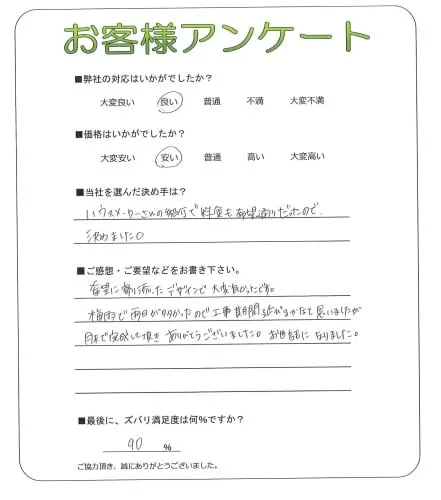 お客様アンケート
■弊社の対応はいかがでしたか?
大変良い 良い 普通 不満 大変不満
■価格はいかがでしたか?
大変安い 安い 普通 高い 大変高い
■当社を選んだ決め手は?
ハウスメーカーさんの紹介で料金も希望通りだったので、
決めました。
■ご感想・ご要望などをお書き下さい。
希望に寄り添ったデザインで大変良かったです。
梅雨で雨日が多かったので工事期間 かなと思いましたが
完成して頂きありがとうございました。お世話になりました。
■最後に、ズバリ満足度は何%ですか?
90 %
ご協力頂き、誠にありがとうございました。